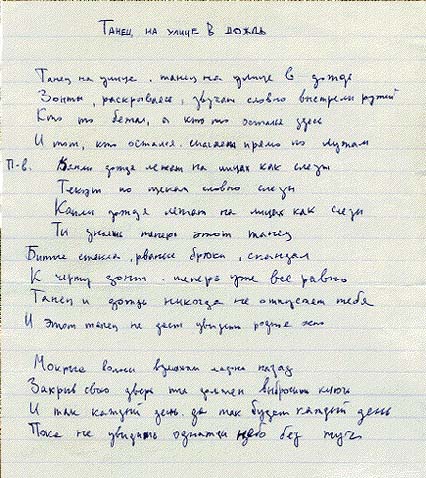 Танец на улице в дождь
Танец на улице, танец на улице в дожде
Зонты, раскрываясь, звучат словно выстрелы ружей
Кто то бежал, а кто то остался здесь
И тот, кто остался прямо по лужам
П-в. Капли дождя лежат на лицах как слезы
Текут по щекам словно слезы
Капли дождя лежат на лицах как слезы
Ты знаешь теперь этот танец
Битые стекла, рваные брюки, скандал
К черту зонт. теперь уже все равно
Танец и дождь никогда не отпустят тебя
И этот танец не даст увидеть родные
Мокрые волосы ладони назад
Закрыв свою дверь ты должен выбросить ключ
И так каждый день, да так будет каждый день
Пока не увидишь однажды небо без туч